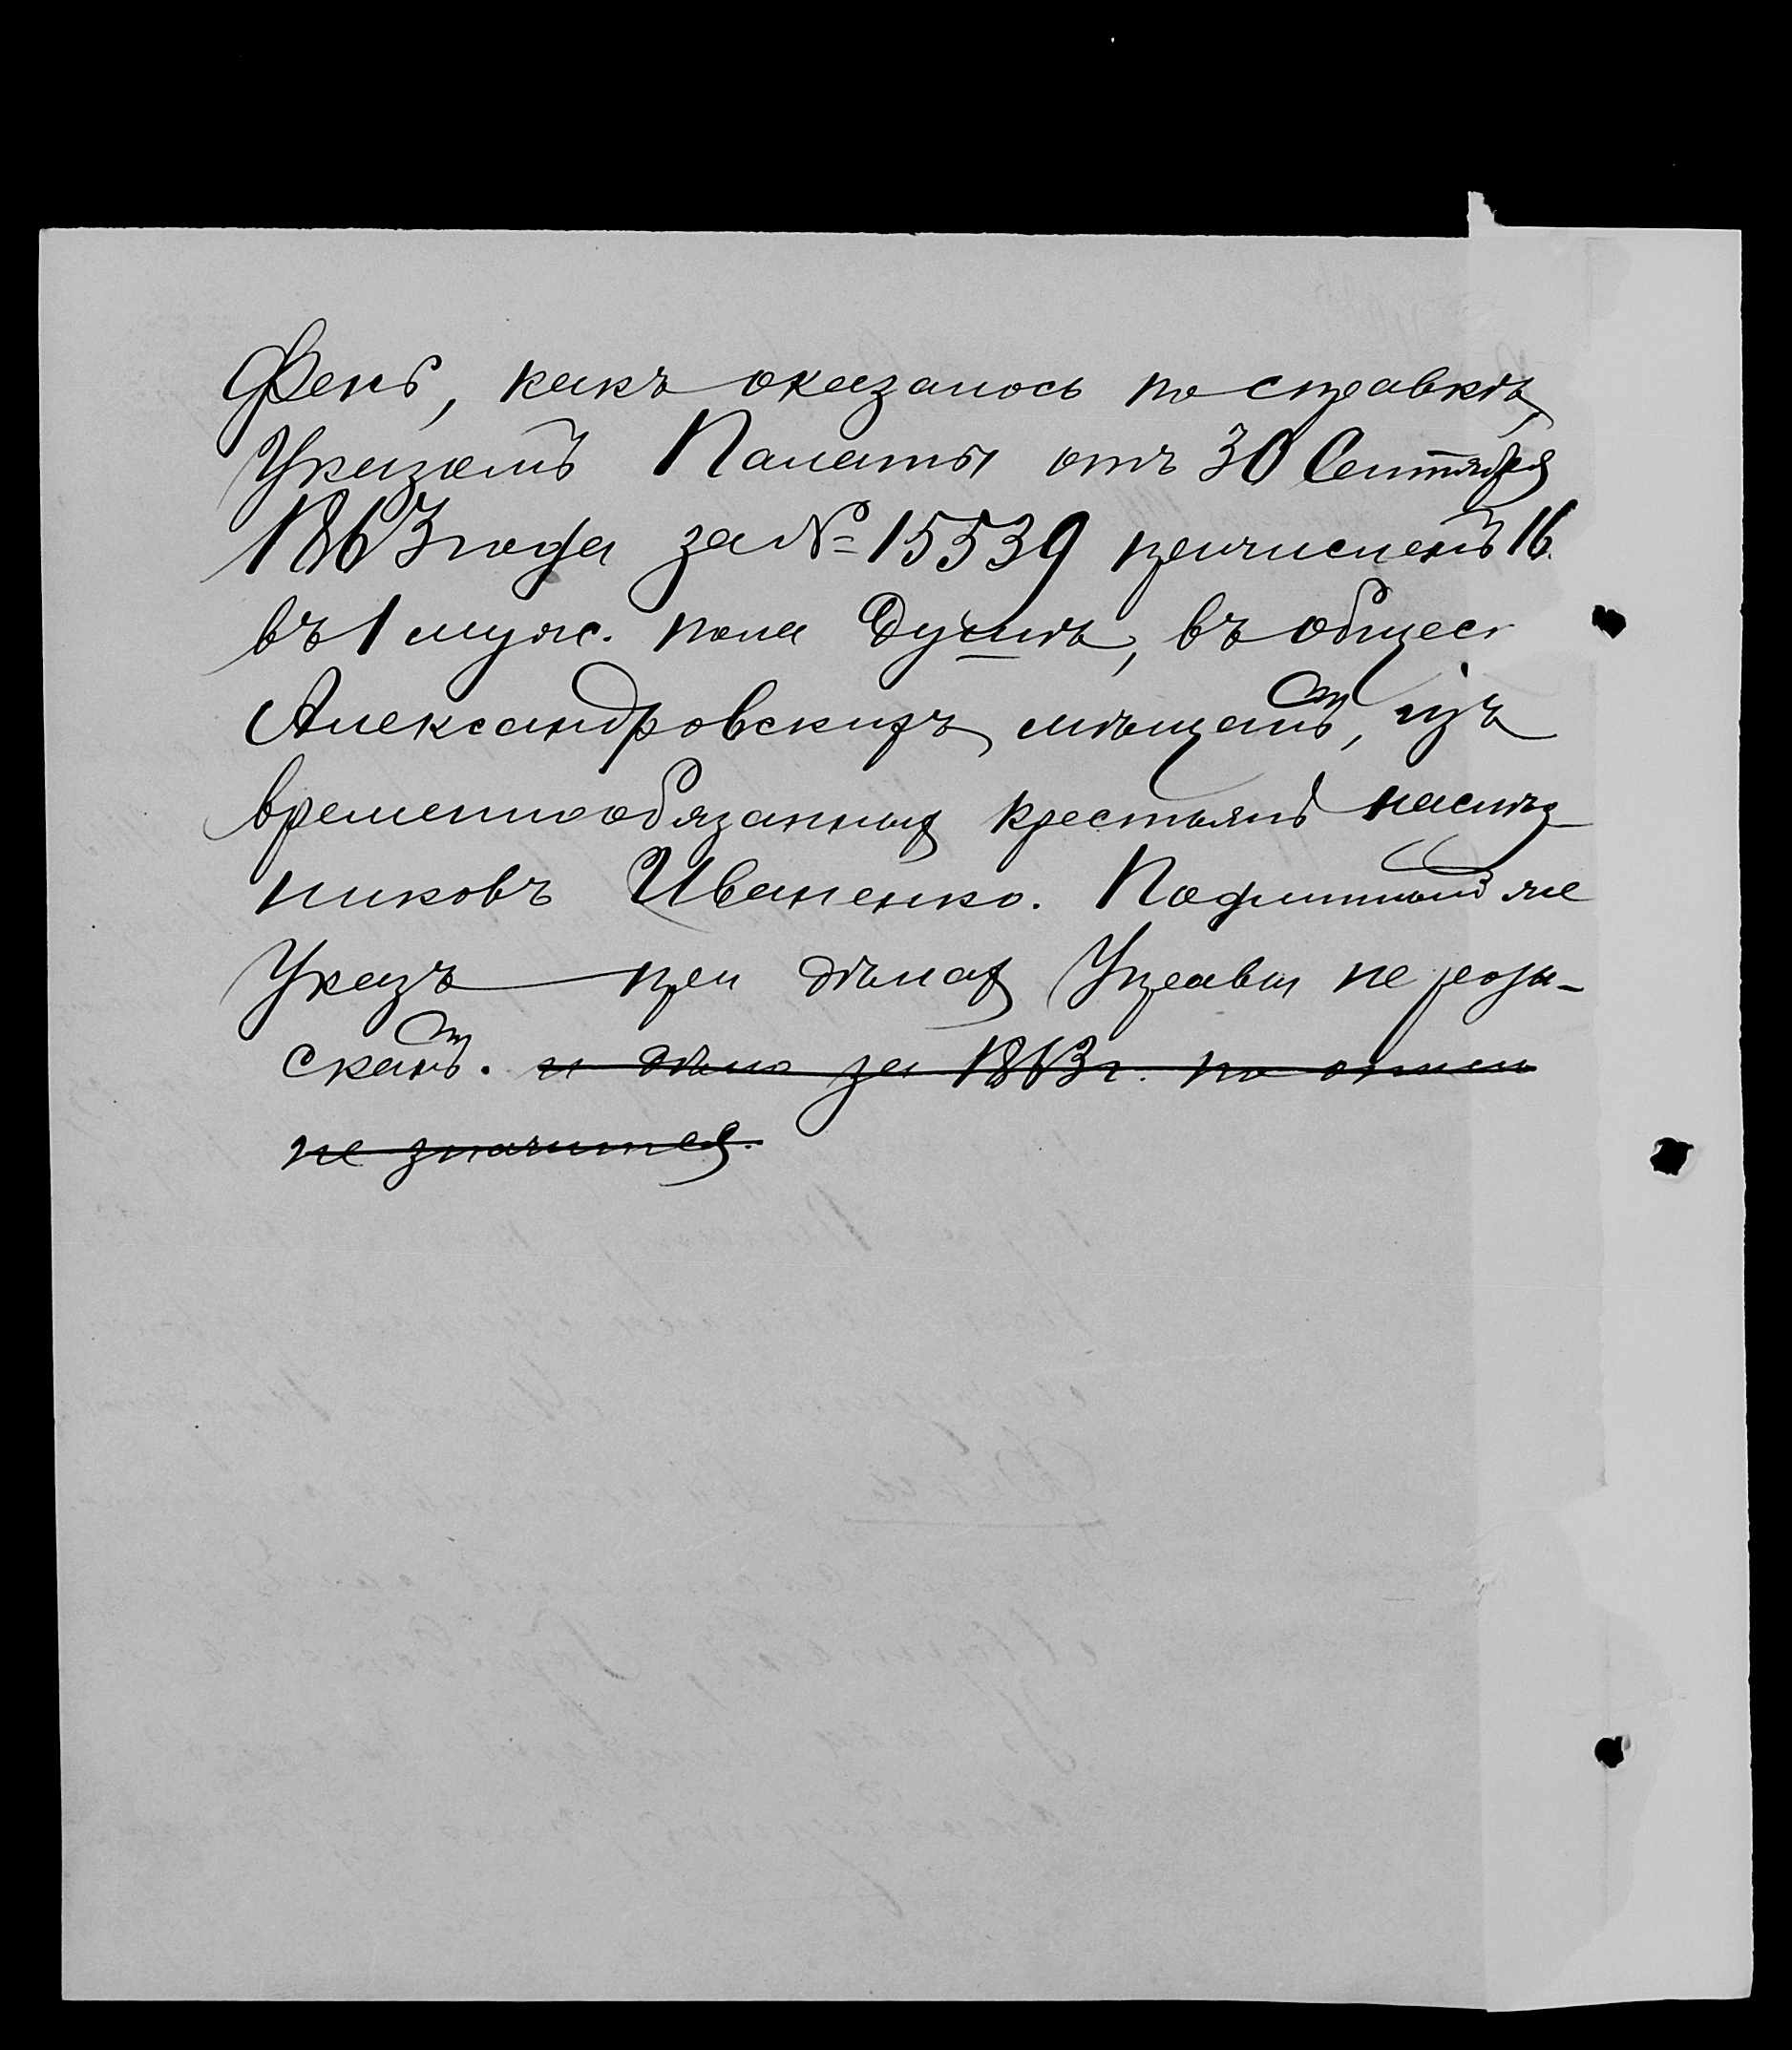 Фенъ, какъ оказалось по справкѣ,
Указомъ Палаты отъ 30 Сентября
1863 года за № 15539 причисленъ 16.
въ 1 муж. пола душѣ, въ общес
Александровскихъ мѣщанъ, изъ
временнообязанныхъ крестьянъ наслѣд-
никовъ Иваненко. Подлинный же
Указъ при дѣлахъ Управы не розы-
сканъ. и дѣло за 1863 г. по описи
не значится.